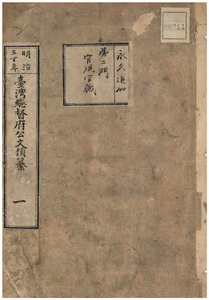 永久追加
第三門
官規官職
明治三十年
臺灣總督府公文類纂
一